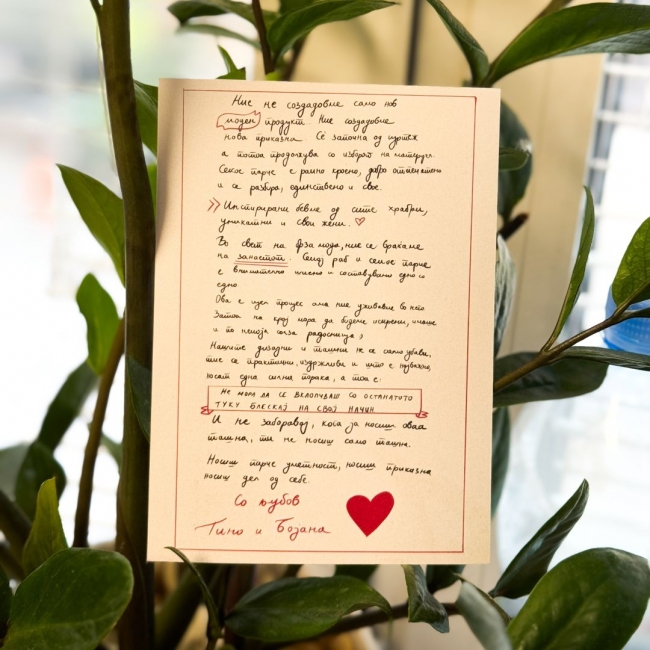 Ние не создадовме само нов
моден продукт. Ние создадовме
нова приказна. Сѐ започна од цртеж
а потоа продолжува со изборот на материјал.
Секое парче е рачно кроено, добро отпечатено
и се разбира, единствено и свое.
Инспирирани бевме од сите храбри,
уникатни и свои жени.
Во свет на брза мода, ние се враќаме
на занаетот. Секој раб и секое парче
е внимателно шиено и составувано едно со
едно
Ова е цел процес ама ние уживавме во него
Затоа на крај мора да бидеме искрени, имаше
и по некоја солза радосница ;)
Нашите дизајни и ташни не се само убави,
тие се практични, издржливи и што е најважно,
носат една силна порака, а таа е:
НЕ МОРА ДА СЕ ВКЛОПУВАШ СО ОСТАНАТИТЕ
ТУКУ БЛЕСКАЈ НА СВОЈ НАЧИН
И не заборавај, кога ја носиш оваа
ташна, ти не носиш само ташна.
Носиш парче уметност, носиш приказна
носиш дел од себе.
Со љубов
Тино и Бојана